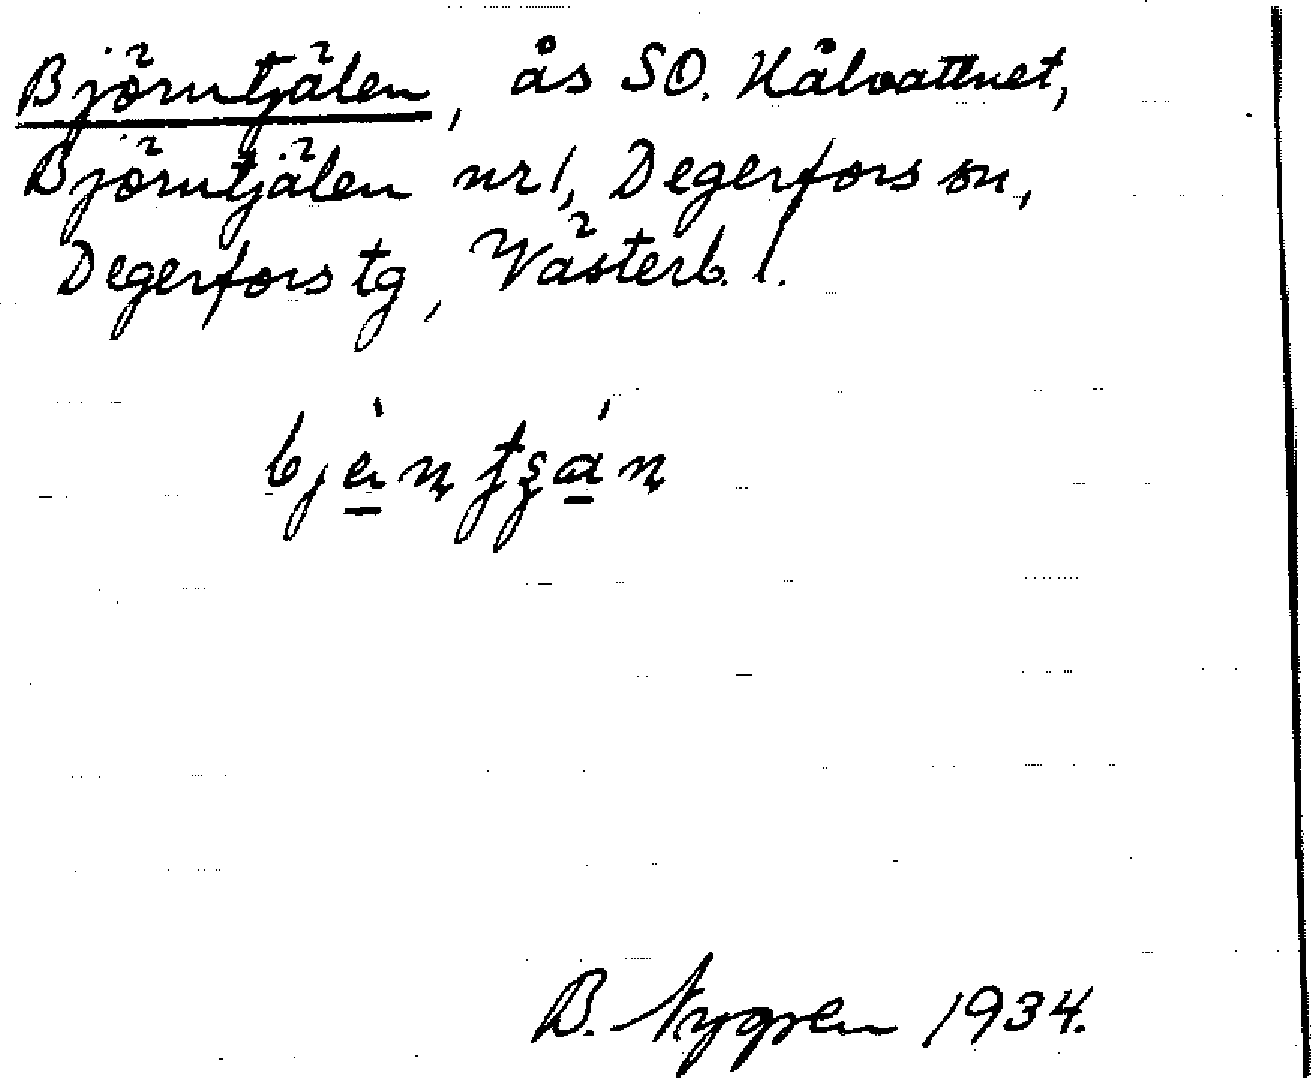 Björntjälen, ås SO. Kålvattnet,
Björntjälen nr 1, Degerfors sn,
Degerfors tg, Västerb. l.
B. Nygren 1934.